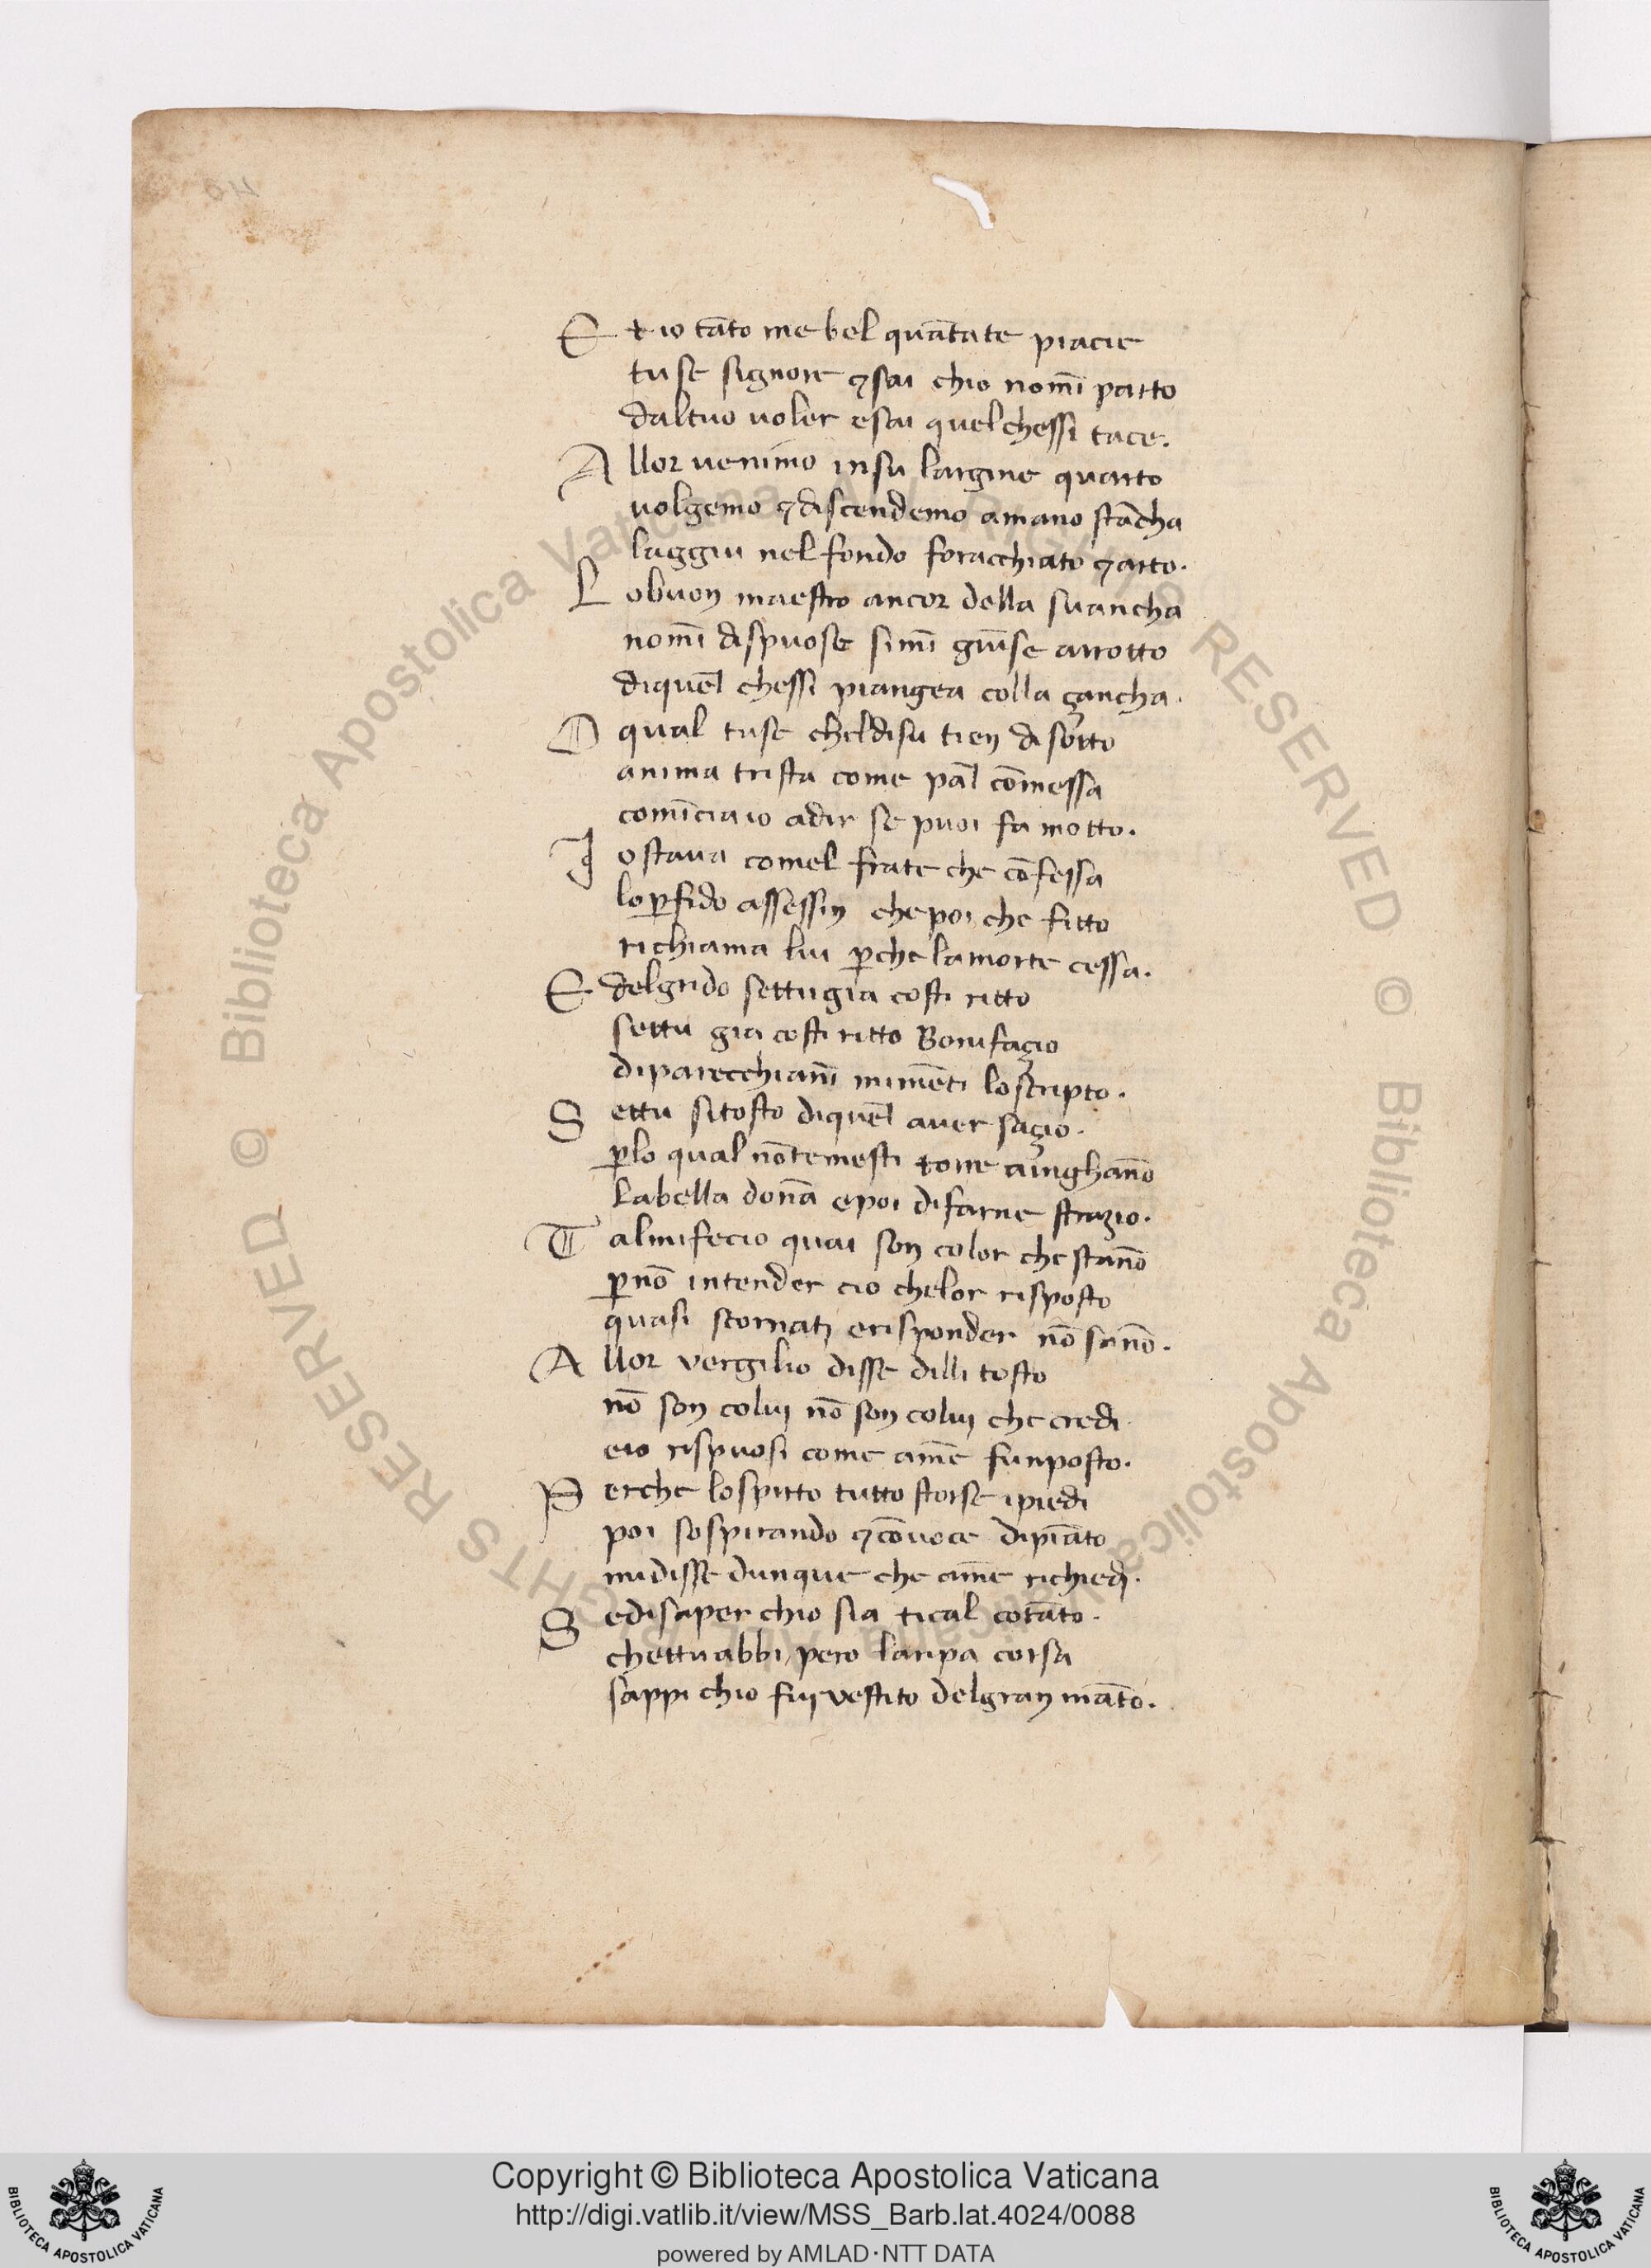 E t io tāto me bel quāta te piacie
tu se signore ⁊ sai chio nomī parto
dal tuo voler e sai quel chessi tace.
A llor venimo in su largine quarto
volgemo ⁊ discendemo a mano stācha
laggiu nel fondo foracchiato ⁊ arto.
L o buon maestro ancor della su ancha
nomī dispuose simī giūse al rotto
di quel chessi piangea colla çancha.
O qual tu se chel di su tien di sotto
anima trista come pal cōmessa
comīcia io a dir se puoi fa motto.
I o stava comel frate che cōfessa
lo ꝑfido assessin che poi che fitto
richiama lui ꝑche la morte cessa.
E del grido settu gia costi ritto
settu gia costi ritto Bonifaçio
di parecchi anni mi mēti lo scripto.
S ettu si tosto di quel aver saçio.
ꝑ lo qual nō temesti torre a inghanō
la bella donā e poi di farne strazio.
T al mi fecio quai son color che stanō
ꝑ nō intender cio chelor risposto
quasi scornati e risponder nō sanō.
A llor vergilio disse dilli tosto
nō son colui nō son colui che credi
e io rispuosi come a me fu īposto.
P erche lo spirto tutto storse i piedi
poi sospirando ⁊ cō voce di piāto
mi disse dunque che a me richiedi.
S e di saper chio sia ti cal cotāto.
chettu abbi pero la ripa corsa
sappi chio fui vestito del gran māto.
Copyright © Biblioteca Apostolica Vaticana
http://digi.vatlib.it/view/MSS_Barb.lat.4024/0088
powered by AMLAD·NTT DATA
BIBLIOTECA APOSTOLICA VATICANA
BIBLIOTECA APOSTOLICA VATICANA